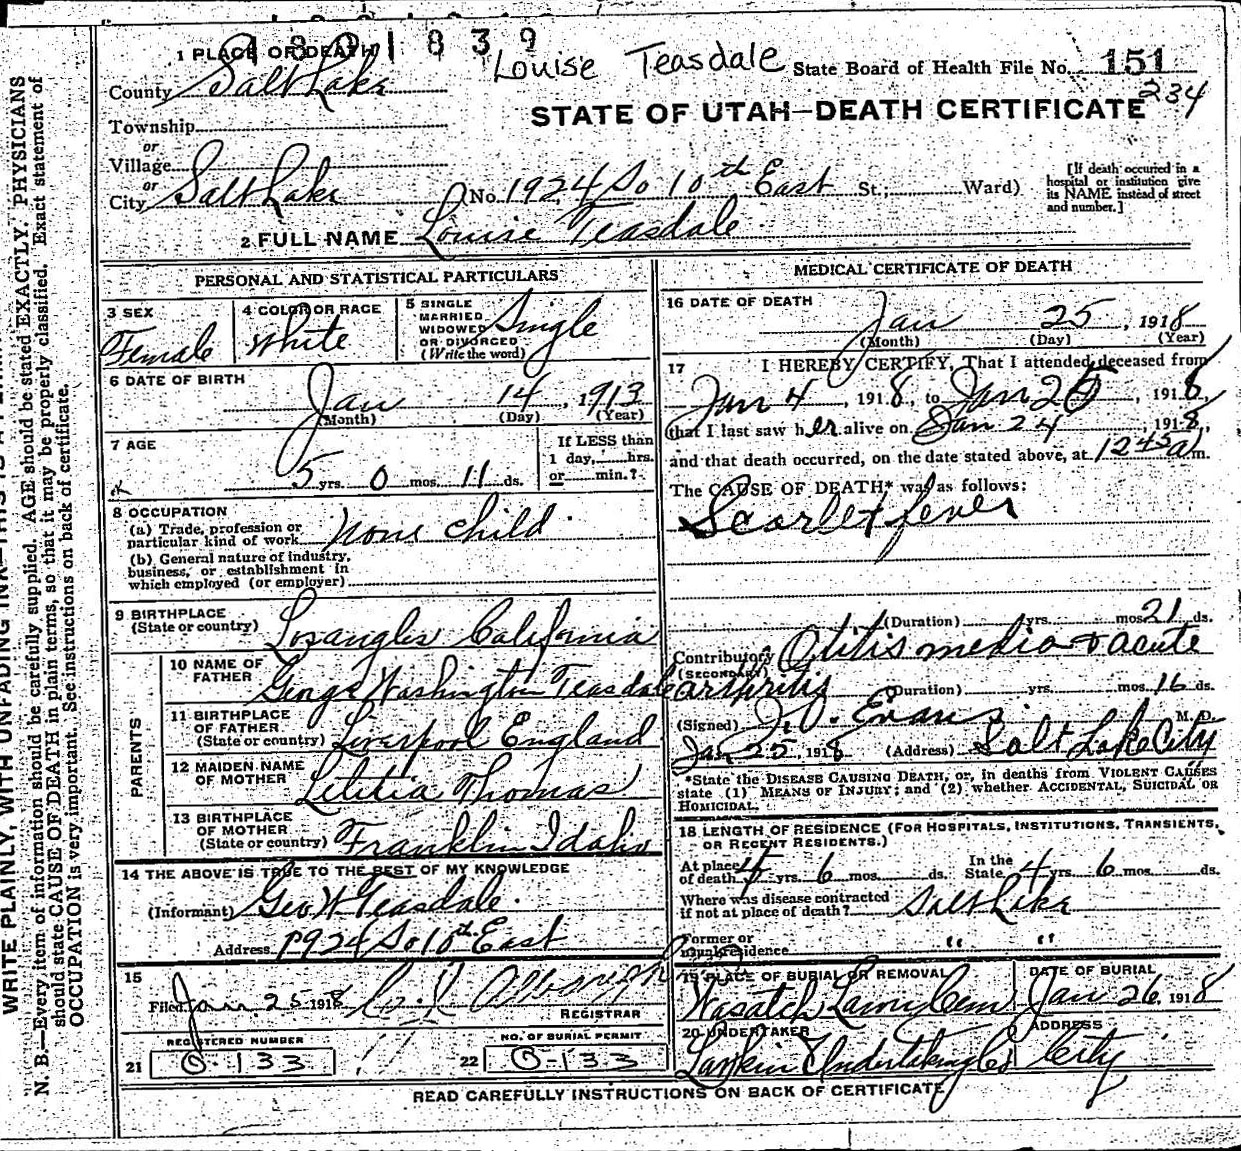 1801839
Louise Teasdale
State Board of Health File No. 151
234
STATE OF UTAH—DEATH CERTIFICATE
1 PLACE OF DEATH
County Salt Lake
Township
or
Village
or
City Salt Lake (No. 1924 So 10th East St.; Ward)
[If death occurred in a hospital or institution give its NAME instead of street and number.]
2 FULL NAME Louise Teasdale
PERSONAL AND STATISTICAL PARTICULARS
3 SEX Female
4 COLOR OR RACE White
5 SINGLE MARRIED WIDOWED OR DIVORCED (Write the word) Single
6 DATE OF BIRTH
Jan 14, 1913
(Month) (Day) (Year)
7 AGE
5 yrs. 0 mos. 11 ds.
If LESS than 1 day, hrs. or min.?
8 OCCUPATION
(a) Trade, profession or particular kind of work None Child
(b) General nature of industry, business, or establishment in which employed (or employer)
9 BIRTHPLACE (State or country) Losangles California
PARENTS
10 NAME OF FATHER George Washington Teasdale
11 BIRTHPLACE OF FATHER (State or country) Liverpool England
12 MAIDEN NAME OF MOTHER Letitia Thomas
13 BIRTHPLACE OF MOTHER (State or country) Franklin Idaho
14 THE ABOVE IS TRUE TO THE BEST OF MY KNOWLEDGE
(Informant) Geo W Teasdale
Address 1924 So 10th East
15
Filed Jan. 25 1918
REGISTRAR
21 REGISTERED NUMBER B-133
22 NO. OF BURIAL PERMIT B-133
MEDICAL CERTIFICATE OF DEATH
16 DATE OF DEATH
Jan 25, 1918
(Month) (Day) (Year)
17 I HEREBY CERTIFY, That I attended deceased from
Jan 4, 1918, to Jan 25, 1918,
that I last saw her alive on Jan 24, 1918,
and that death occurred, on the date stated above, at 1245 a m.
The CAUSE OF DEATH* was as follows:
Scarlet fever
(Duration) yrs. mos. 21 ds.
Contributory (SECONDARY) Otitis media & acute
arthritis (Duration) yrs. mos. 16 ds.
(Signed) J. O. Evans M. D.
Jan 25, 1918 (Address) Salt Lake City
*State the DISEASE CAUSING DEATH, or, in deaths from VIOLENT CAUSES
state (1) MEANS OF INJURY; and (2) whether ACCIDENTAL, SUICIDAL OR
HOMICIDAL.
18 LENGTH OF RESIDENCE (FOR HOSPITALS, INSTITUTIONS, TRANSIENTS,
OR RECENT RESIDENTS.)
At place of death 4 yrs. 6 mos. ds. In the State 4 yrs. 6 mos. ds.
Where was disease contracted if not at place of death? Salt Lake
Former or usual residence " "
19 PLACE OF BURIAL OR REMOVAL Wasatch Lawn Cem
DATE OF BURIAL Jan 26, 1918
20 UNDERTAKER Larkin Undertaking Co
ADDRESS City
READ CAREFULLY INSTRUCTIONS ON BACK OF CERTIFICATE
WRITE PLAINLY, WITH UNFADING INK—THIS IS A
N. B.—Every item of information should be carefully supplied. AGE should be stated EXACTLY. PHYSICIANS
should state CAUSE OF DEATH in plain terms, so that it may be properly classified. Exact statement of
OCCUPATION is very important. See instructions on back of certificate.